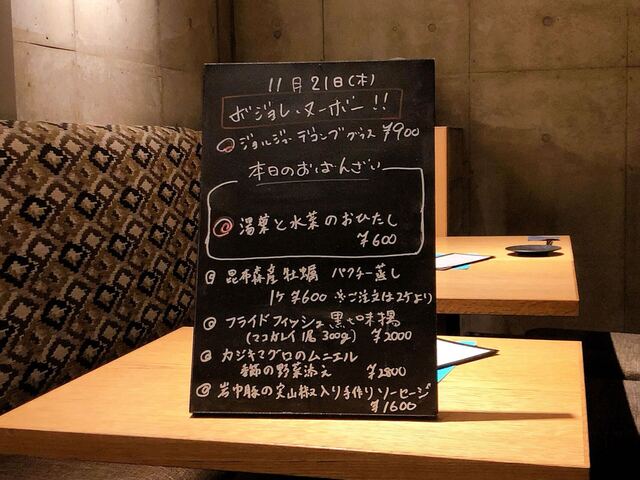 11月21日(木)
ボジョレ・ヌーボー!!
ジョルジュ・デュブッフ グラス ¥900
本日のおばんざい
湯葉と水菜のおひたし
¥600
昆布森産牡蠣 パクチー蒸し
1ケ ¥600 ※ご注文は2ケより
フライドフィッシュ黒七味揚
(マコカレイ1尾 300g) ¥2000
カジキマグロのムニエル
季節の野菜添え ¥2800
岩中豚の実山椒入り手作りソーセージ
¥1600